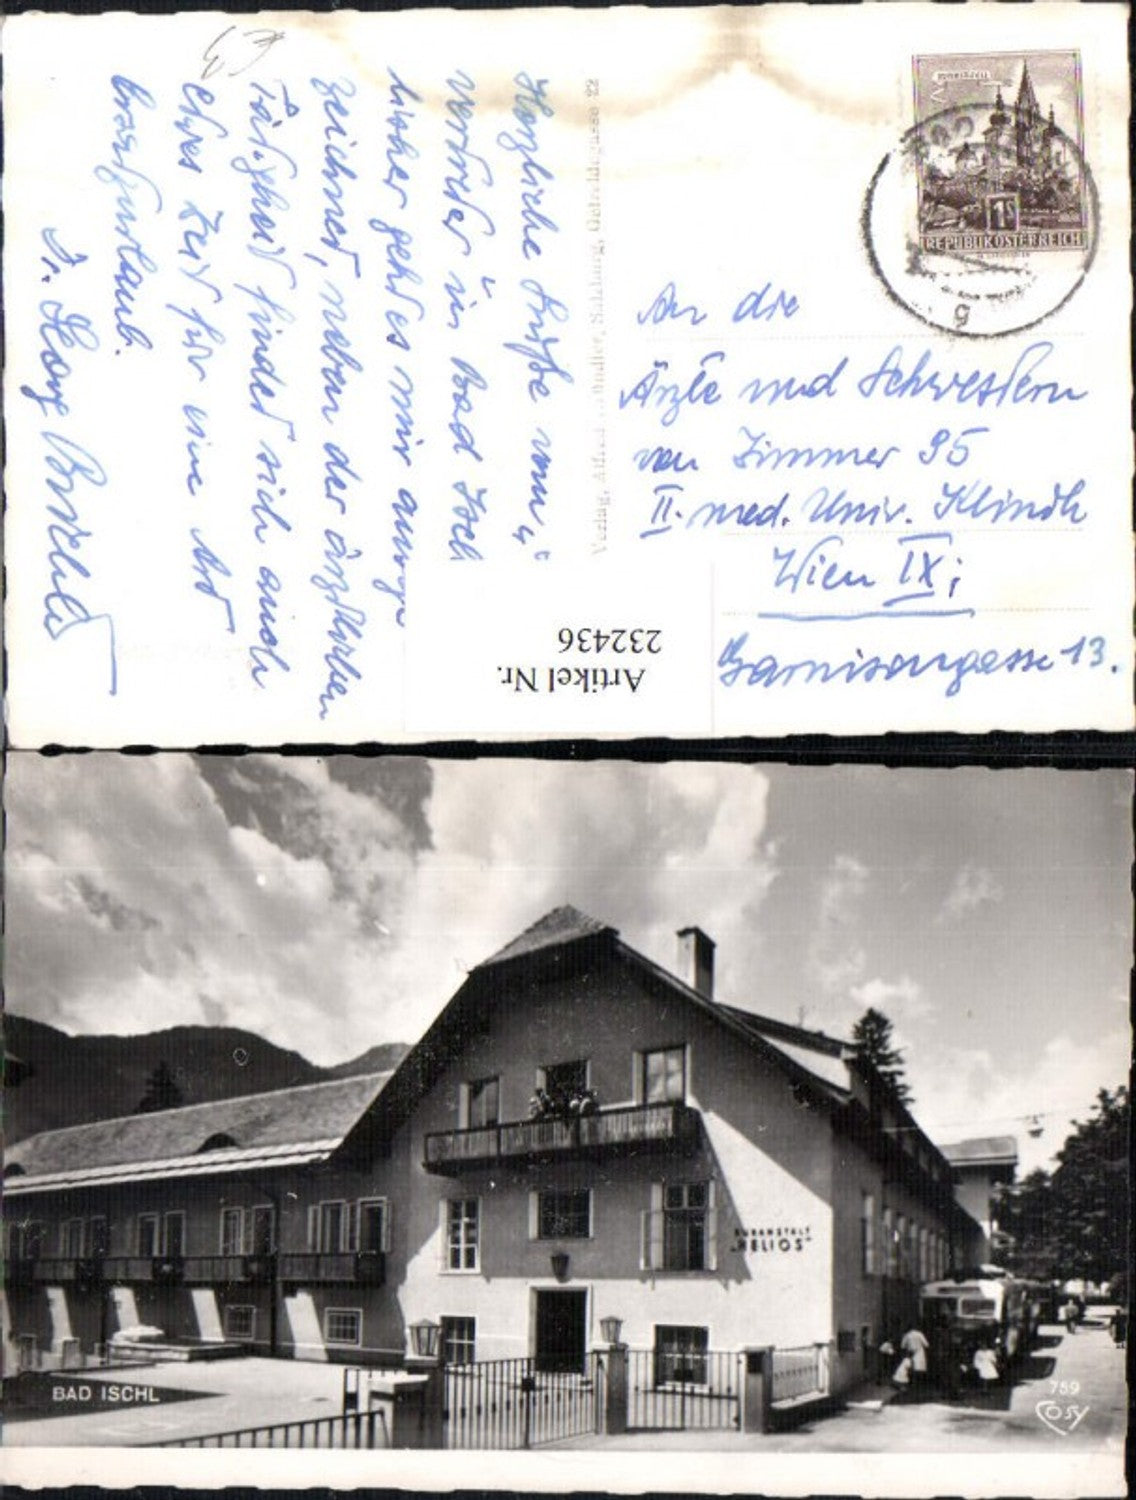 Herzliche Grüße vom „
vertreter in Bad Isch
bisher geht es mir ausge
zeichnet, neben der ärztlichen
Tätigkeit findet sich auch
etwas Zeit für eine Art
Dr. Georg
Verlag, Alfred Salzburg, Getreidegasse 22
REPUBLIK ÖSTERREICH
1S
An die
Ärzte und Schwestern
von Zimmer 95
II. med. Univ. Klinik
Wien IX;
Garnisongasse 13.
Artikel Nr.
232436
KURANSTALT
„HELIOS"
BAD ISCHL
789
Cosy